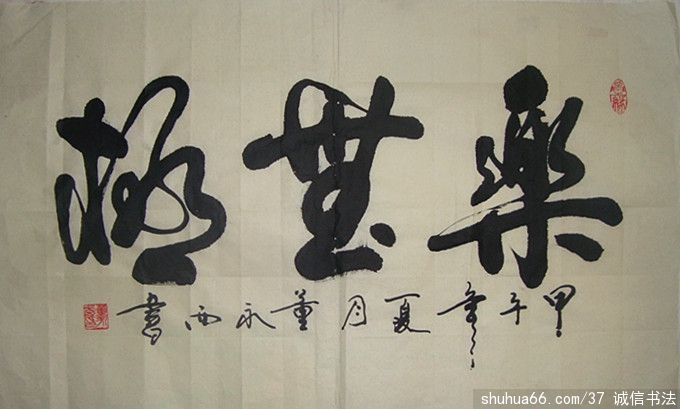 樂無極
甲午年夏月董永西書
shuhua66.com/37 诚信书法